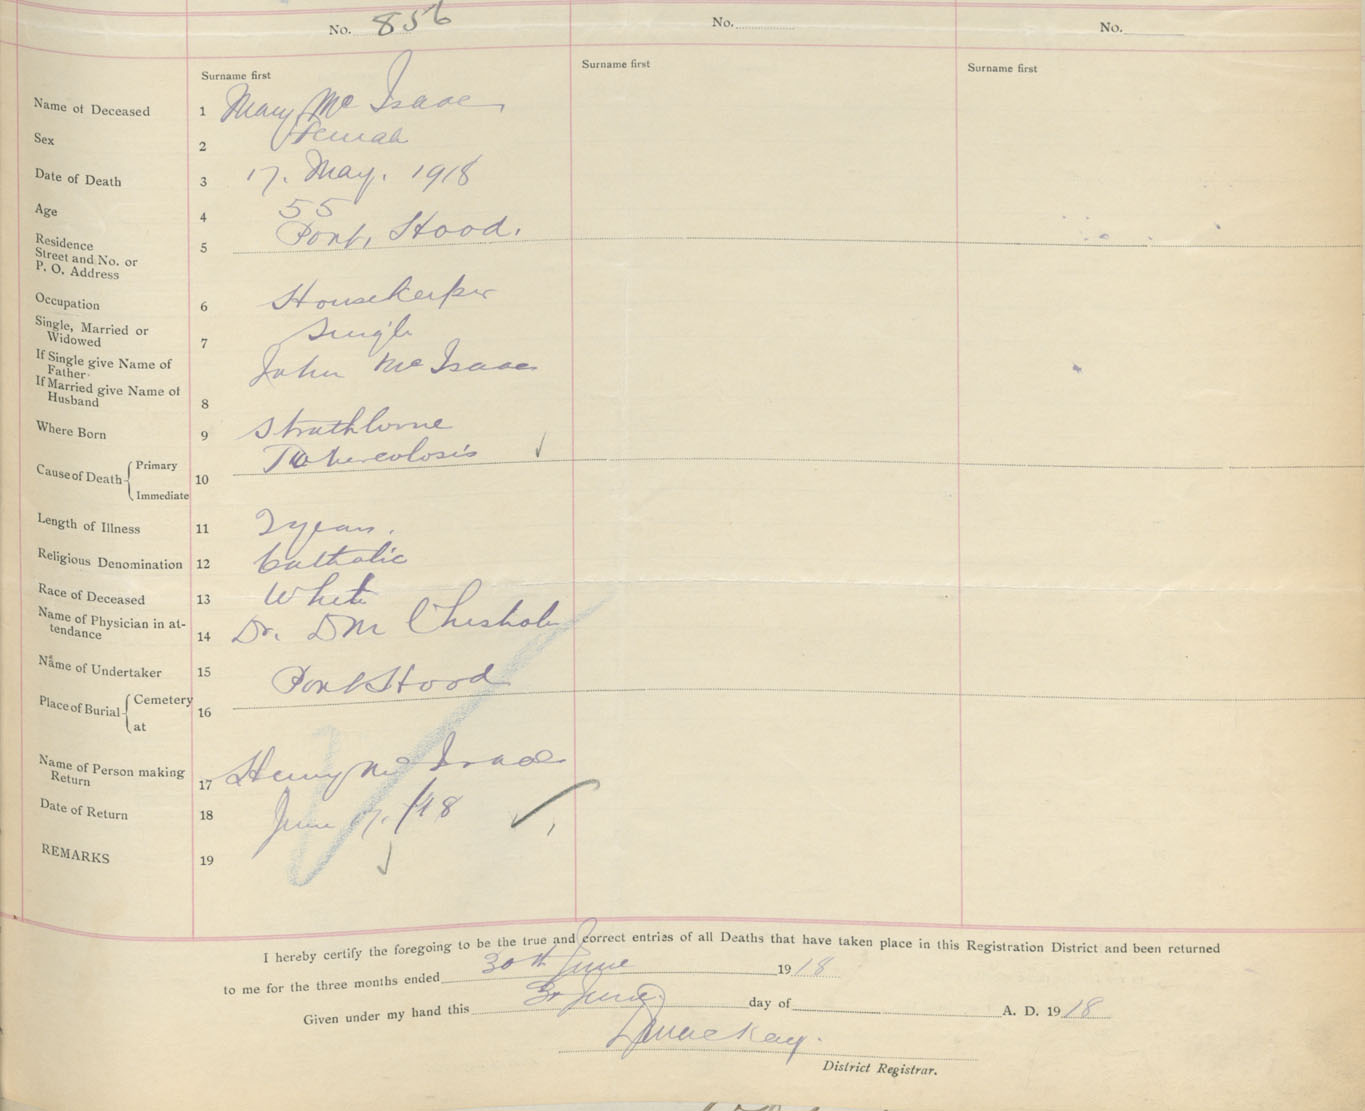 No. 856
No.
No.
Surname first
Surname first
Surname first
Name of Deceased 1 Mary Mc Isaac
Sex 2 Female
Date of Death 3 17. May. 1918
Age 4 55
Residence
Street and No. or
P. O. Address 5 Port Hood.
Occupation 6 Housekeeper
Single, Married or
Widowed 7 Single
If Single give Name of
Father
If Married give Name of
Husband 8 John Mc Isaac
Where Born 9 Strathlorne
Cause of Death Primary
Immediate 10 Tuberculosis
Length of Illness 11 2 years.
Religious Denomination 12 Catholic
Race of Deceased 13 White
Name of Physician in at-
tendance 14 Dr. D M Chisholm
Name of Undertaker 15
Place of Burial Cemetery
at 16 Port Hood
Name of Person making
Return 17 Henry Mc Isaac
Date of Return 18 June 17. /18
REMARKS 19
I hereby certify the foregoing to be the true and correct entries of all Deaths that have taken place in this Registration District and been returned
to me for the three months ended 30th June 1918
Given under my hand this 30 June day of A. D. 1918
D MacKay.
District Registrar.